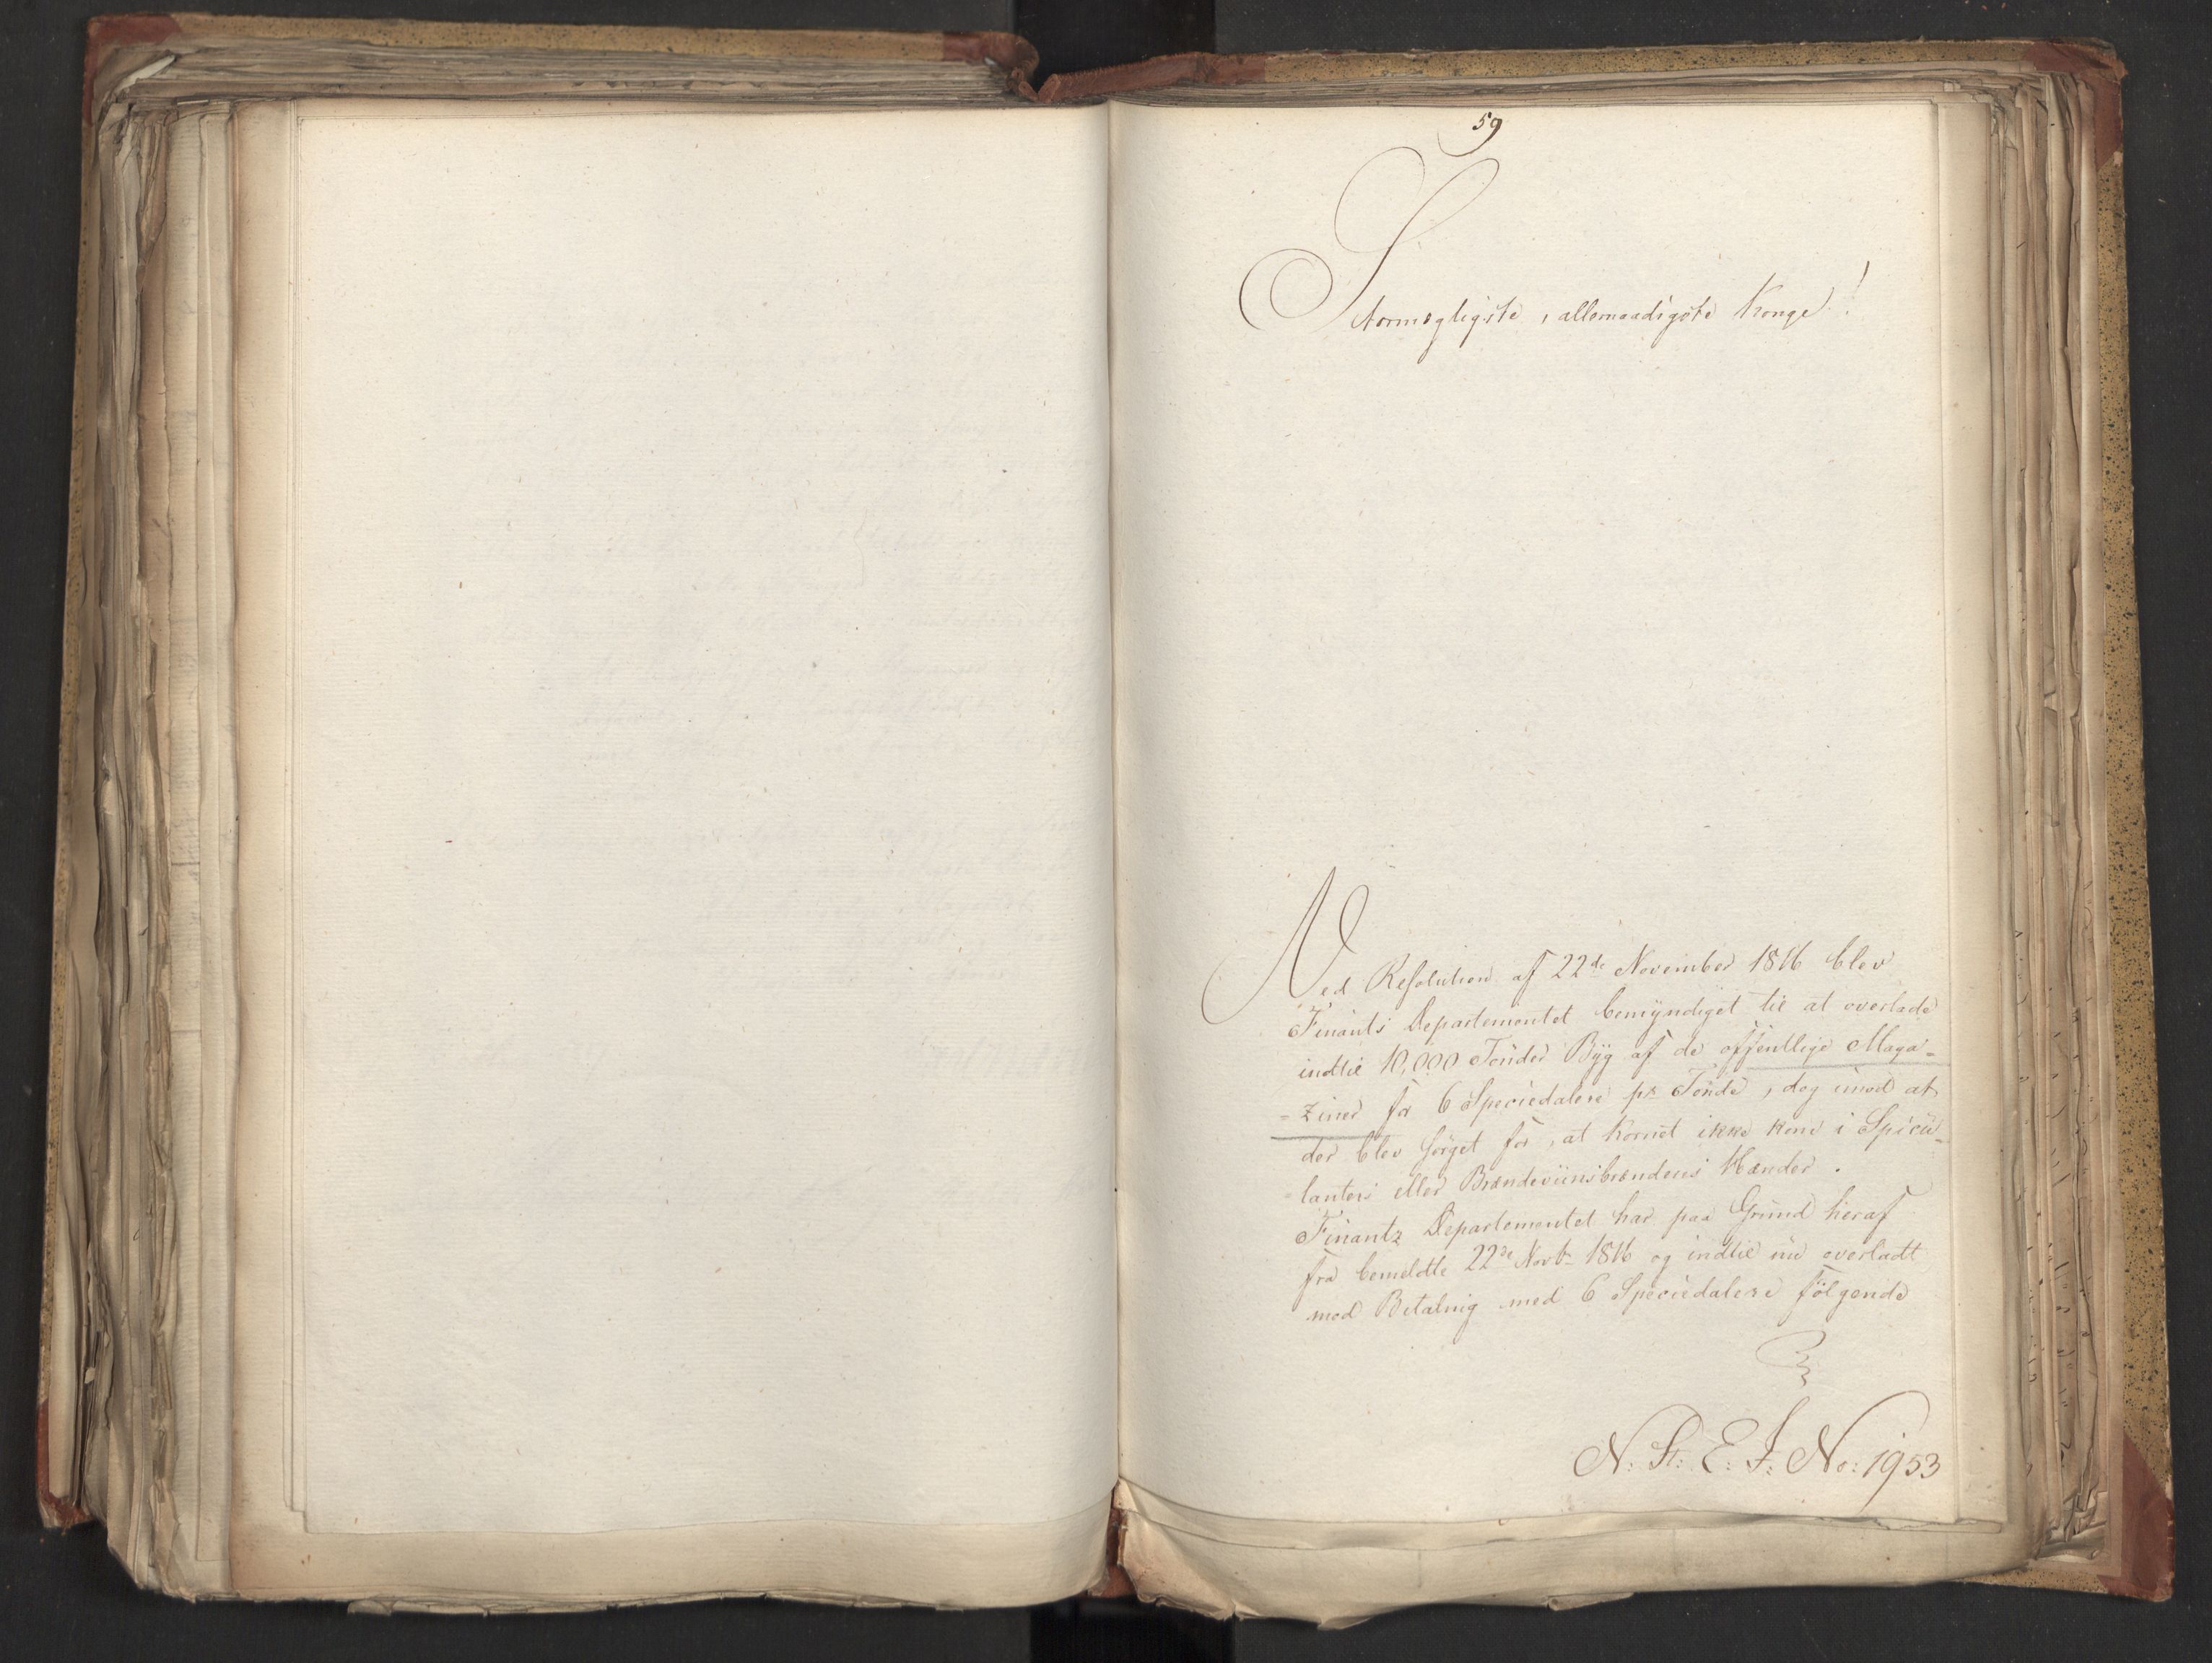 59
Stormægtigste, allernaadigste Konge!
Ved Resolution af 22de November 1816 blev
Finants Departementet bemyndiget til at overlade
indtil 10,000 Tønder Byg af de offentlige Maga=
=ziner for 6 Speciedalere pr Tønde, dog imod at
der blev sørget for, at Kornet ikke kom i Specu=
=lanters eller Brændeviinsbrænderes Hænder.
Finantz Departementet har paa Grund heraf
fra bemeldte 22de Novbr 1816 og indtil nu overladt
mod Betaling med 6 Speciedalere følgende
N: St: E: J: No: 1953